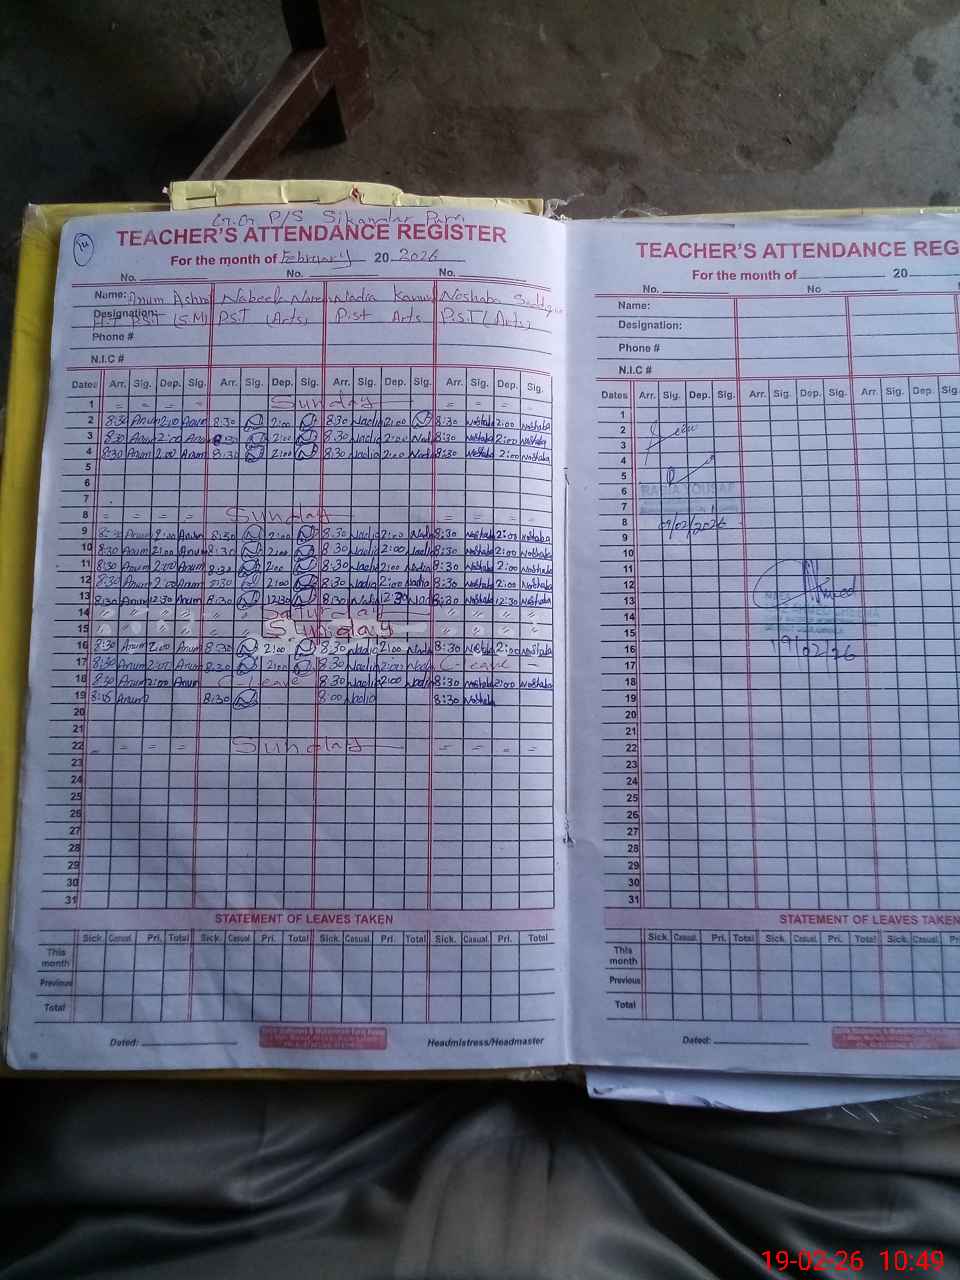 G.G P/S Sikandar Pura
TEACHER'S ATTENDANCE REGISTER
For the month of February 20 2026
No. No. No.
Name: Anum Nabeela Nadia Kanwal Noshaba
Designation: P.S.T (S.M) P.S.T (Arts) P.S.T Arts P.S.T (Arts)
Phone #
N.I.C #
Dates Arr. Sig. Dep. Sig. Arr. Sig. Dep. Sig. Arr. Sig. Dep. Sig. Arr. Sig. Dep. Sig.
1 = = = = Sunday = = = =
2 8:30 Anum 2:00 Anum 8:30 2:00 8:30 Nadia 2:00 8:30 Noshaba 2:00 Noshaba
3 8:30 Anum 2:00 Anum 8:30 2:00 8:30 Nadia 2:00 Nadia 8:30 Noshaba 2:00 Noshaba
4 8:30 Anum 2:00 Anum 8:30 2:00 8:30 Nadia 2:00 Nadia 8:30 Noshaba 2:00 Noshaba
5
6
7
8 = = = = Sunday = = = =
9 8:30 Anum 2:00 Anum 8:30 2:00 8:30 Nadia 2:00 Nadia 8:30 Noshaba 2:00 Noshaba
10 8:30 Anum 2:00 Anum 8:30 2:00 8:30 Nadia 2:00 Nadia 8:30 Noshaba 2:00 Noshaba
11 8:30 Anum 2:00 Anum 8:30 2:00 8:30 Nadia 2:00 Nadia 8:30 Noshaba 2:00 Noshaba
12 8:30 Anum 2:00 Anum 8:30 2:00 8:30 Nadia 2:00 Nadia 8:30 Noshaba 2:00 Noshaba
13 8:30 Anum 12:30 Anum 8:30 12:30 8:30 Nadia 12:30 Nadia 8:30 Noshaba 12:30 Noshaba
14 " " " " Saturday " " " "
15 " " " " Sunday " " " "
16 8:30 Anum 2:00 Anum 8:30 2:00 8:30 Nadia 2:00 Nadia 8:30 Noshaba 2:00 Noshaba
17 8:30 Anum 2:00 Anum 8:30 2:00 8:30 Nadia 2:00 Nadia C-Leave -
18 8:30 Anum 2:00 Anum C-Leave 8:30 Nadia 2:00 Nadia 8:30 Noshaba 2:00 Noshaba
19 8:15 Anum 8:30 8:00 Nadia 8:30 Noshaba
20
21
22 - = = = Sunday = = = =
23
24
25
26
27
28
29
30
31
STATEMENT OF LEAVES TAKEN
Sick. Casual. Pri. Total Sick. Casual. Pri. Total Sick. Casual. Pri. Total Sick. Casual. Pri. Total
This month
Previous
Total
Dated: Headmistress/Headmaster
TEACHER'S ATTENDANCE REG
For the month of 20
No. No No.
Name:
Designation:
Phone #
N.I.C #
Dates Arr. Sig. Dep. Sig. Arr. Sig. Dep. Sig. Arr. Sig. Dep. Sig.
1
2
3
4
5
6 RABIA YOUSAF
7
8 09/02/2026
9
10
11
12
13
14
15
16 19/02/26
17
18
19
20
21
22
23
24
25
26
27
28
29
30
31
STATEMENT OF LEAVES TAKEN
Sick. Casual. Pri. Total Sick. Casual. Pri. Total Sick. Casual. Pri.
This month
Previous
Total
Dated:
19-02-26 10:49